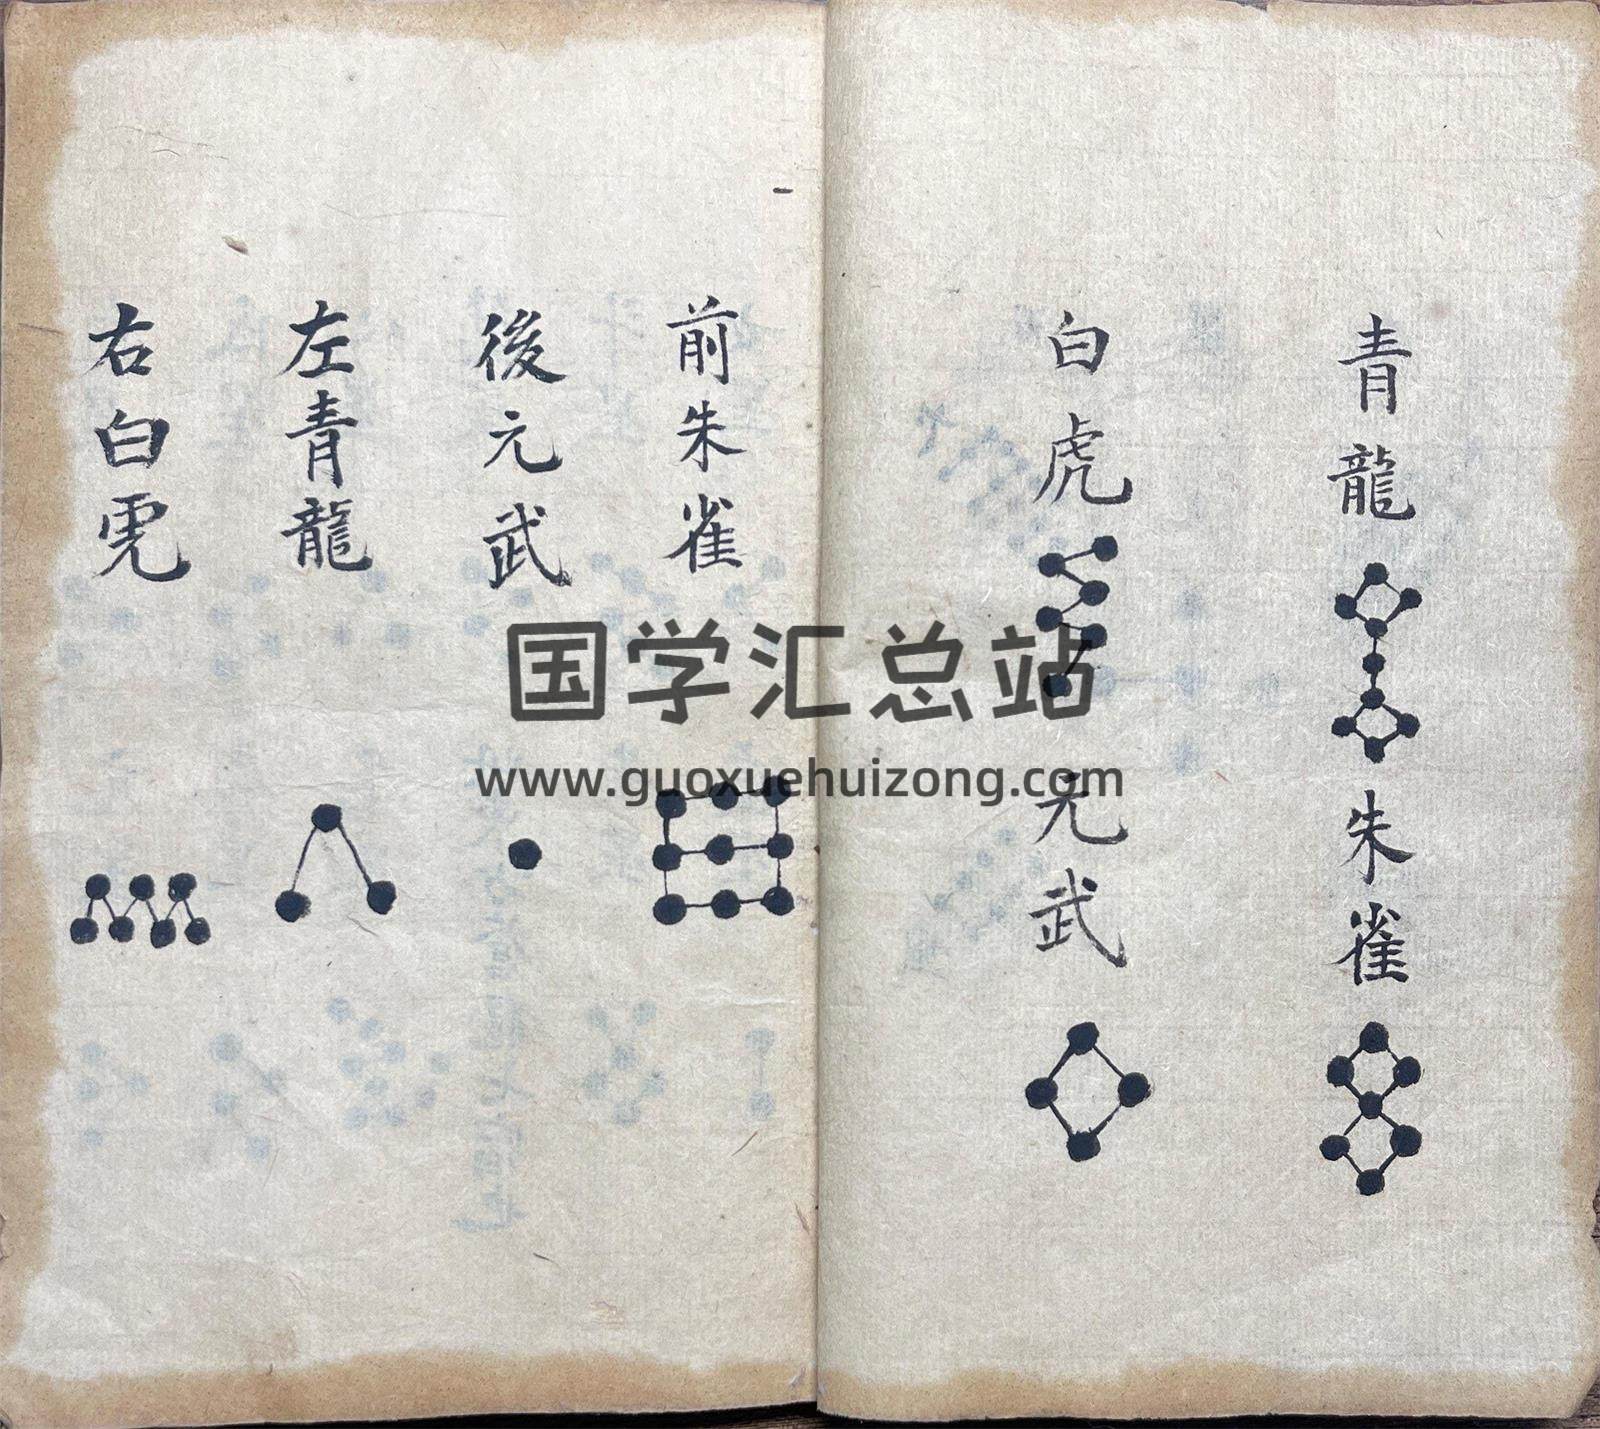 青龍
朱雀
白虎
元武
前朱雀
後元武
左青龍
右白虎
国学汇总站
www.guoxuehuizong.com